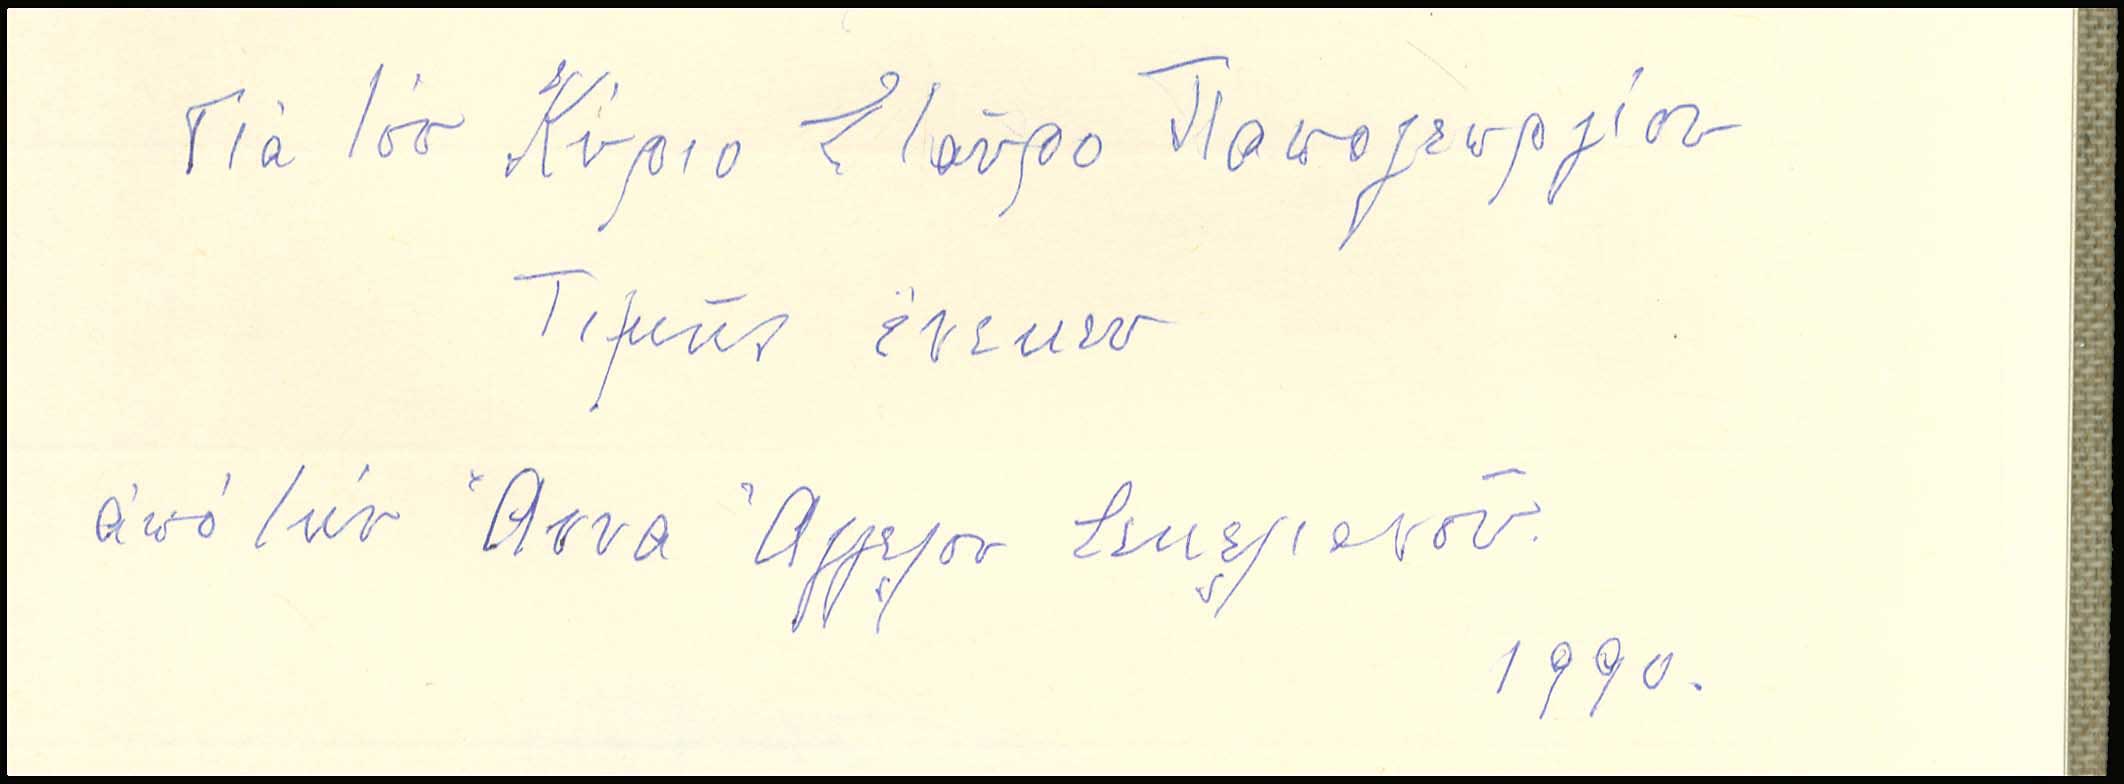 Γιὰ τὸν Κύριο Σταῦρο Παπαγεωργίου
Τιμῆς ἕνεκεν
ἀπό τήν Ἄννα Ἀγγέλου Σικελιανοῦ.
1990.